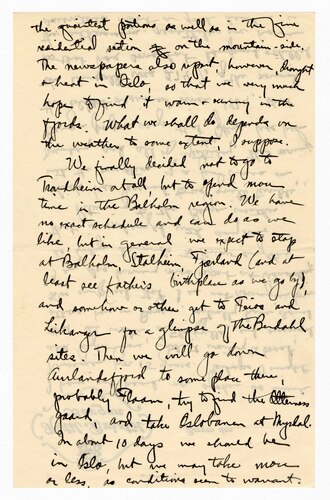 the quaintest portions as well as in the fine
residential section on the mountain-side.
The newspapers also report, however, drought
& heat in Oslo, so that we very much
hope to find it warm & sunny in the
fjords. What we shall do depends on
the weather to some extent, I suppose.
We finally decided not to go to
Trondheim at all, but to spend more
time in the Balholm region. We have
no exact schedule and can do as we
like, but in general we expect to stop
at Balholm, Stalheim, Fjærland (and at
least see father's birthplace as we go by),
and somehow or other get to Feios and
Leikanger for a glimpse of the Bendahl
sites. Then we will go down
Aurlandsfjord to some place there,
probably Flaam, try to find the
gaard, and take Oslobanen at Myrdal.
In about 10 days we should be
in Oslo, but we may take more
or less, as conditions seem to warrant.